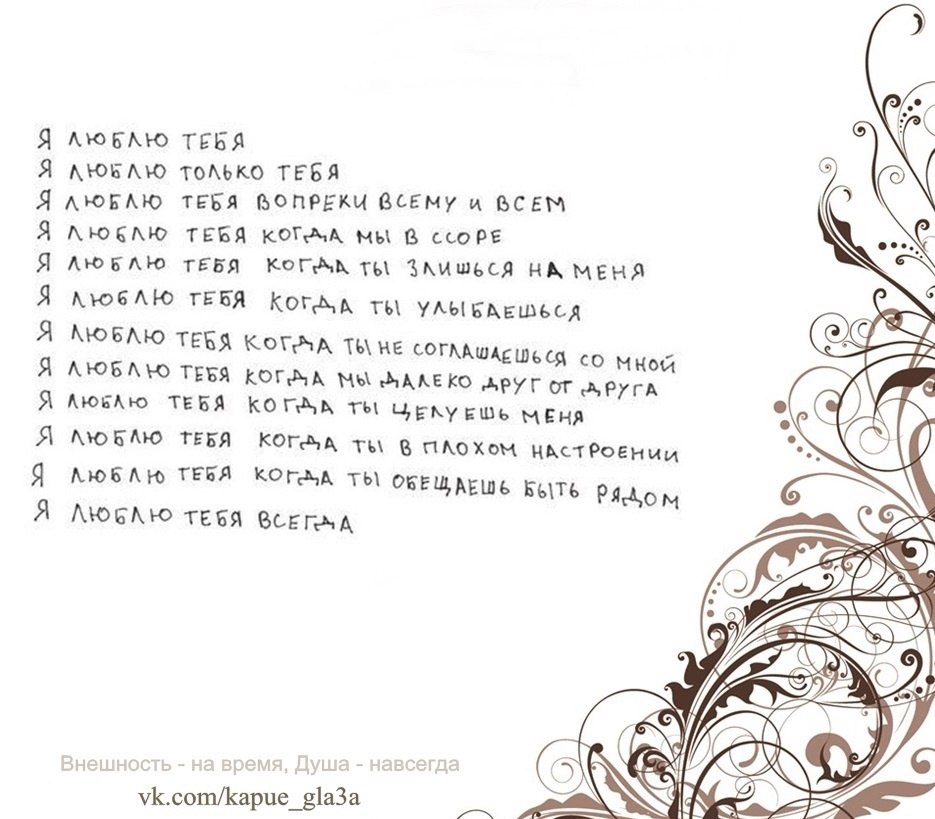 Я ЛЮБЛЮ ТЕБЯ
Я ЛЮБЛЮ ТОЛЬКО ТЕБЯ
Я ЛЮБЛЮ ТЕБЯ ВОПРЕКИ ВСЕМУ И ВСЕМ
Я ЛЮБЛЮ ТЕБЯ КОГДА МЫ В ССОРЕ
Я ЛЮБЛЮ ТЕБЯ КОГДА ТЫ ЗЛИШЬСЯ НА МЕНЯ
Я ЛЮБЛЮ ТЕБЯ КОГДА ТЫ УЛЫБАЕШЬСЯ
Я ЛЮБЛЮ ТЕБЯ КОГДА ТЫ НЕ СОГЛАШАЕШЬСЯ СО МНОЙ
Я ЛЮБЛЮ ТЕБЯ КОГДА МЫ ДАЛЕКО ДРУГ ОТ ДРУГА
Я ЛЮБЛЮ ТЕБЯ КОГДА ТЫ ЦЕЛУЕШЬ МЕНЯ
Я ЛЮБЛЮ ТЕБЯ КОГДА ТЫ В ПЛОХОМ НАСТРОЕНИИ
Я ЛЮБЛЮ ТЕБЯ КОГДА ТЫ ОБЕЩАЕШЬ БЫТЬ РЯДОМ
Я ЛЮБЛЮ ТЕБЯ ВСЕГДА
Внешность - на время, Душа - навсегда
vk.com/kapue_gla3a